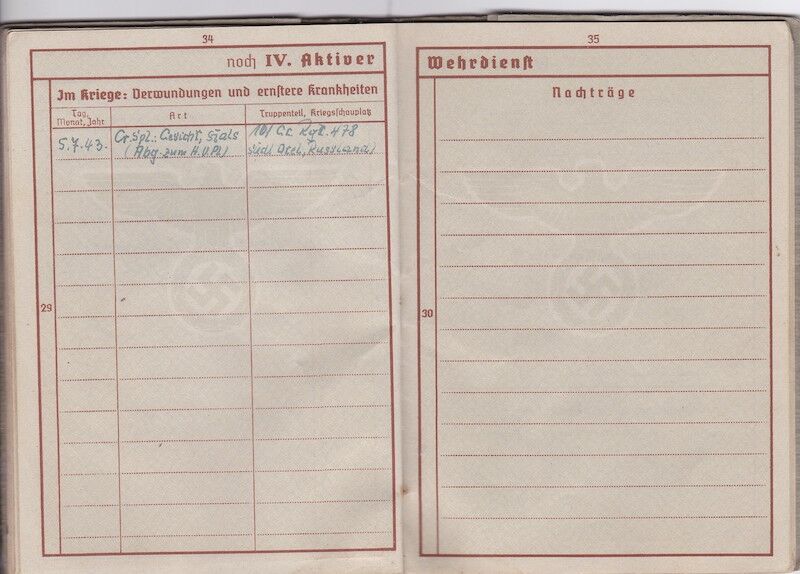 34
noch IV. Aktiver
Im Kriege: Verwundungen und ernstere Krankheiten
Tag, Monat, Jahr
Art
Truppenteil, Kriegsschauplatz
5.7.43.
Gr. Spl.: Gesicht, Hals
(Abg. zum H.V.Pl.)
10/Gr. Rgt. 478
südl Orel, Russland)
29
35
Wehrdienst
Nachträge
30